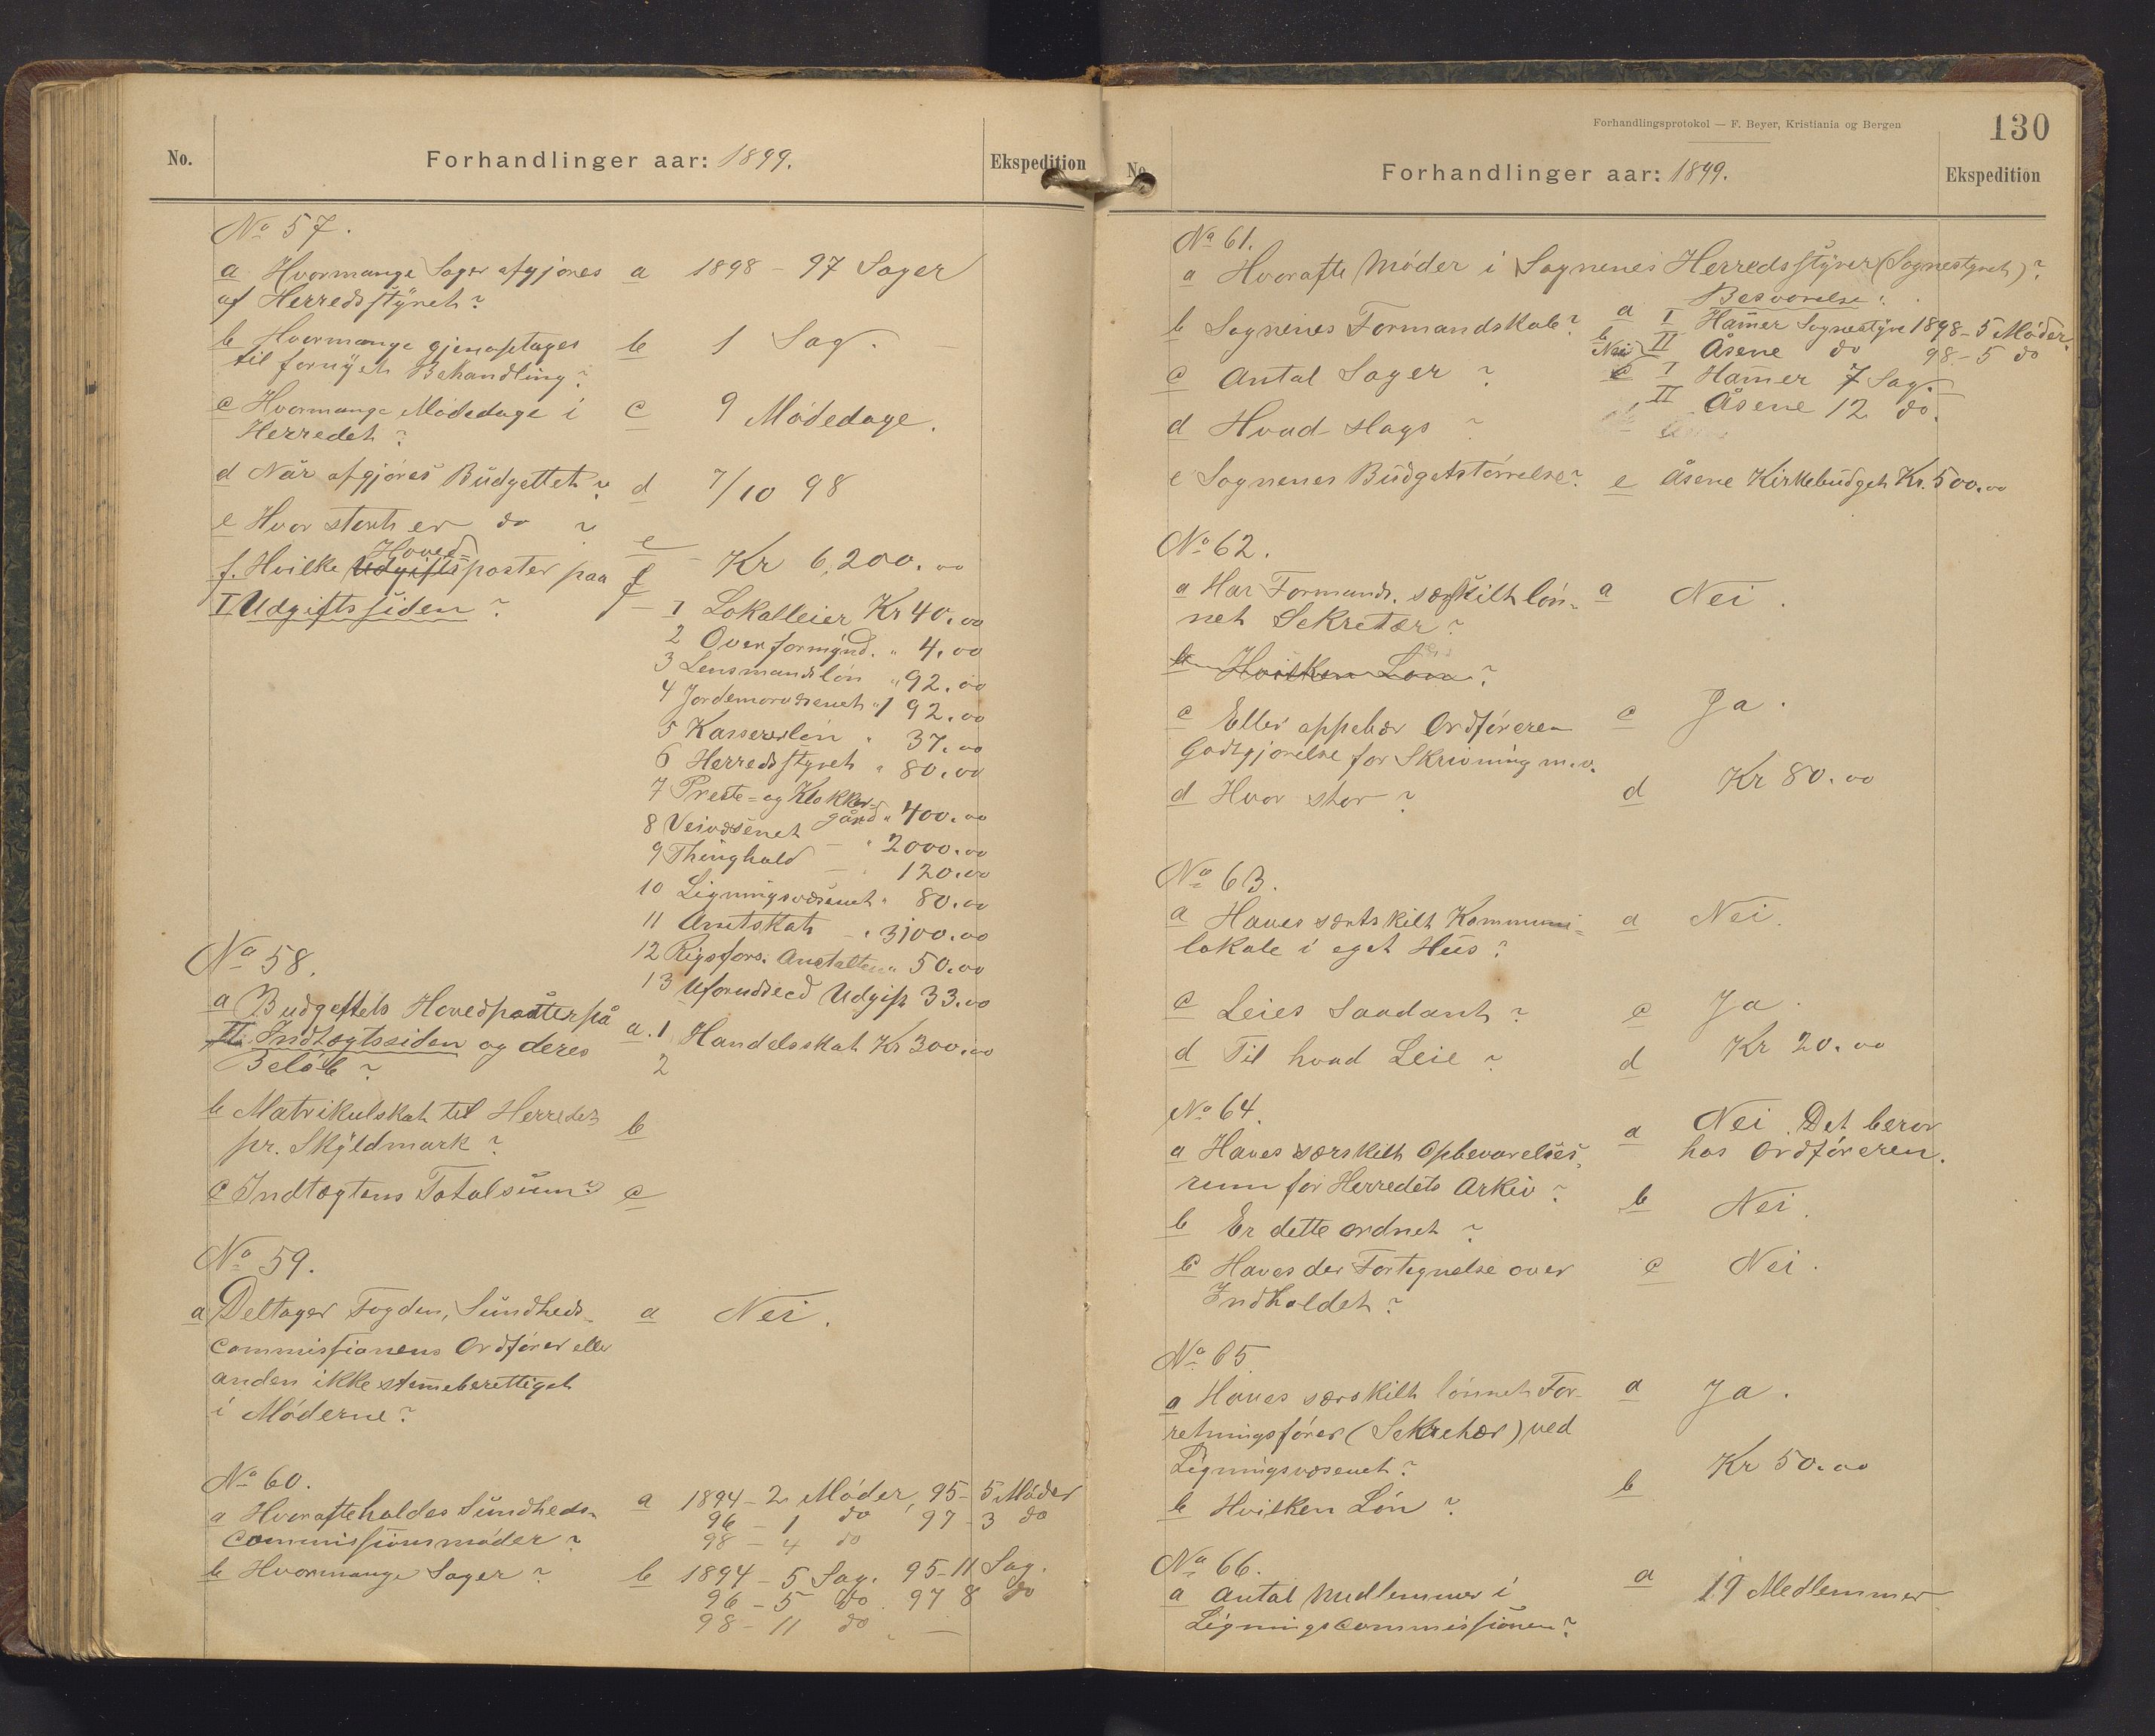 No.
Forhandlinger aar: 1899.
Ekspedition
No 57.
a Hvormange Sager afgjøres
af Herredsstyret?
a 1898 - 97 Sager
b Hvormange gjenoptages
til fornyet Behandling?
b 1 Sag.
c Hvormange Mødedage i
Herredet?
c 9 Mødedage.
d Når afgjøres Budgettet?
d 7/10 98
e Hvor stort er do ?
e - Kr 6,200.00
f. Hvilke Udgifts Hovedposter paa
I Udgiftssiden ?
f - 1 Lokalleier Kr 40.00
2 Overformynd. " 4.00
3 Lensmandsløn " 92.00
4 Jordemorvæsenet " 192.00
5 Kassererløn " 37.00
6 Herredsstyret " 80.00
7 Preste- og Klokker-
gård " 400.00
8 Veivæsenet - " 2000.00
9 Thinghold - 120.00
10 Ligningsvæsenet " 80.00
11 Amtskat - " 3100.00
12 Rigsfors. Anstalten " 50.00
13 Uforudseed Udgift 33.00
No 58.
a Budgettets Hovedposter på
II Indtægtssiden og deres
Beløb ?
a. 1 Handelsskat Kr 300.00
2
b Matrikulskat til Herredet
pr. Skyldmark ?
b
c Indtægtens Totalsum?
c
No 59.
a Deltager Fogden, Sundheds-
commissionens Ordfører eller
anden ikke stemeberettiget
i Møderne?
a Nei.
No 60.
a Hvorofte holdes Sundheds-
commissionsmøder ?
a 1894 - 2 Møder, 95 - 5 Møder
96 - 1 do 97 - 3 do
98 - 4 do
b Hvormange Sager ?
b 1894 - 5 Sag. 95 - 11 Sag.
96 - 5 do. 97 8 do
98 - 11 do. -
Forhandlingsprotokol — F. Beyer, Kristiania og Bergen
130
No.
Forhandlinger aar: 1899.
Ekspedition
No 61.
a Hvorofte Møder i Sognenes Herredsstyrer (Sognestyret)?
Besvarelse:
b Sognenes Formandskab?
a I Hamer Sognestyre 1898 - 5 Møder.
b Nei II Åsene do 98 - 5 do
c Antal Sager ?
c I Hamer 7 Sag.
II Åsene 12 do.
d Hvad slags ?
e Sognenes Budgetstørrelse?
e Åsene Kirkebudget Kr. 500.00
No 62.
a Har Formands. særskilt løn-
net Sekretær?
a Nei.
b Hvilken Løn ?
c Eller oppebær Ordføreren
Godtgjørelse for Skrivning m.v.
c Ja.
d Hvor stor ?
d Kr 80.00
No 63.
a Haves særskilt Kommune-
lokale i eget Hus ?
a Nei.
c Leies saadant ?
c Ja.
d Til hvad Leie ?
d Kr 20.00
No 64.
a Haves særskilt Opbevarelses-
rum for Herredets Arkiv ?
a Nei. Det beror
hos Ordføreren.
b Er dette ordnet ?
b Nei.
c Haves der Fortegnelse over
Indholdet ?
c Nei.
No 65.
a Haves særskilt lønnet For-
retningsfører (Sekretær) ved
Ligningsvæsenet ?
a Ja.
b Hvilken Løn ?
b Kr 50.00
No 66.
a Antal Medlemmer i
Ligningscommissionen?
a 19 Medlemmer